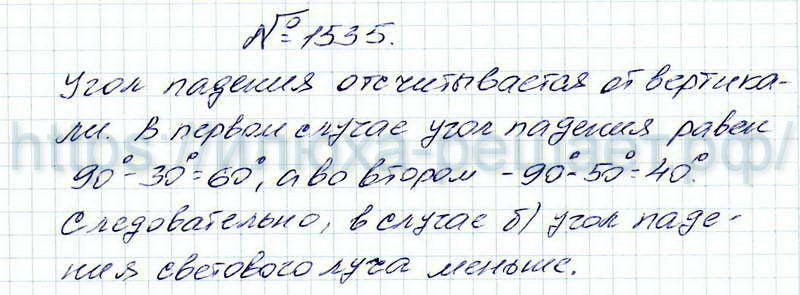 № 1535.
Угол падения отсчитывается от вертика-
ли. В первом случае угол падения равен
90° - 30° = 60°, а во втором - 90° - 50° = 40°.
Следовательно, в случае б) угол паде-
ния светового луча меньше.